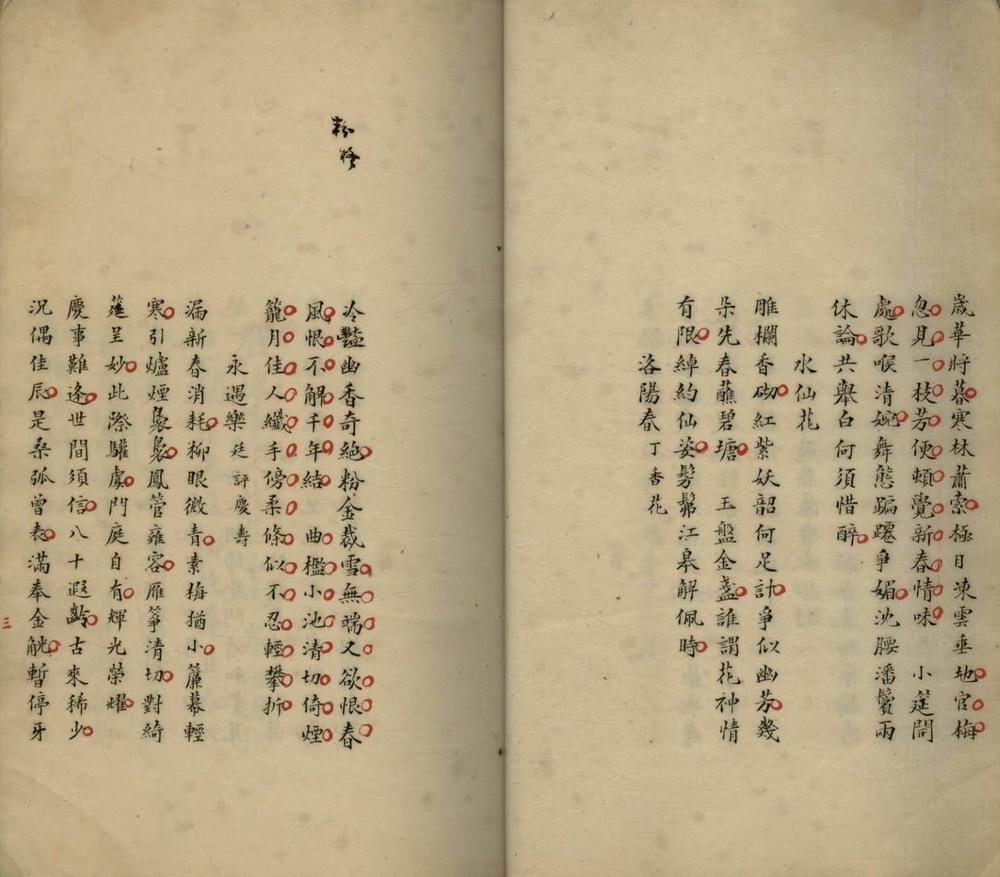 歲華將暮寒林蕭索極目凍雲垂地官梅
忽見一枝芳便頓覺新春情味　小筵開
處歌喉清婉舞態蹁躚爭媚沈腰潘鬢兩
休論共舉白何須惜醉
水仙花
雕欄香砌紅紫妖韶何足計爭似幽芳幾
朵先春蘸碧塘　玉盤金盞誰謂花神情
有限綽約仙姿髣髴江臯解佩時
洛陽春　丁香花
粉修
冷豔幽香奇絕粉金裁雪無端又欲恨春
風恨不解千年結　曲檻小池清切倚煙
籠月佳人纖手傍柔條似不忍輕攀折
永遇樂　廷評慶壽
漏新春消耗柳眼微青素梅猶小簾幕輕
寒引爐煙裊裊鳳管雍容雁箏清切對綺
筵呈妙此際驩虞門庭自有輝光榮耀
慶事難逢世間須信八十遐齡古來稀少
況偶佳辰是桑弧曾表滿奉金觥暫停牙
三